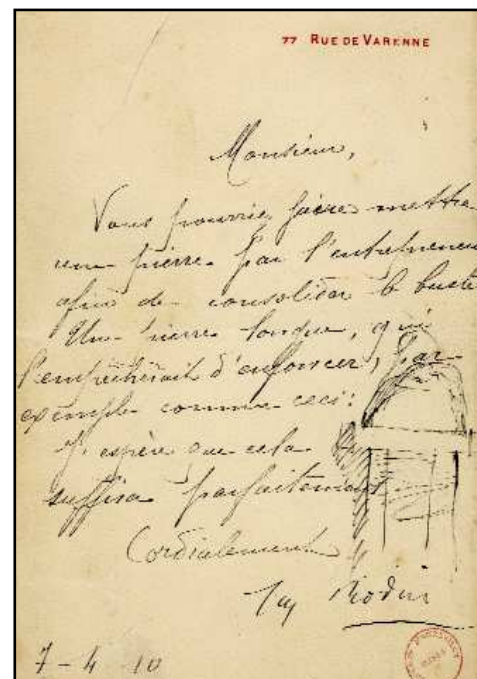 77 RUE DE VARENNE
Monsieur,
Vous pourriez faire mettre
une pierre par l'entrepreneur
afin de consolider le buste
Une pierre longue, qui
l'empêcherait d'enfoncer, par
exemple comme ceci:
J'espère que cela
suffira parfaitement
Cordialement
Rodin
7-4 10